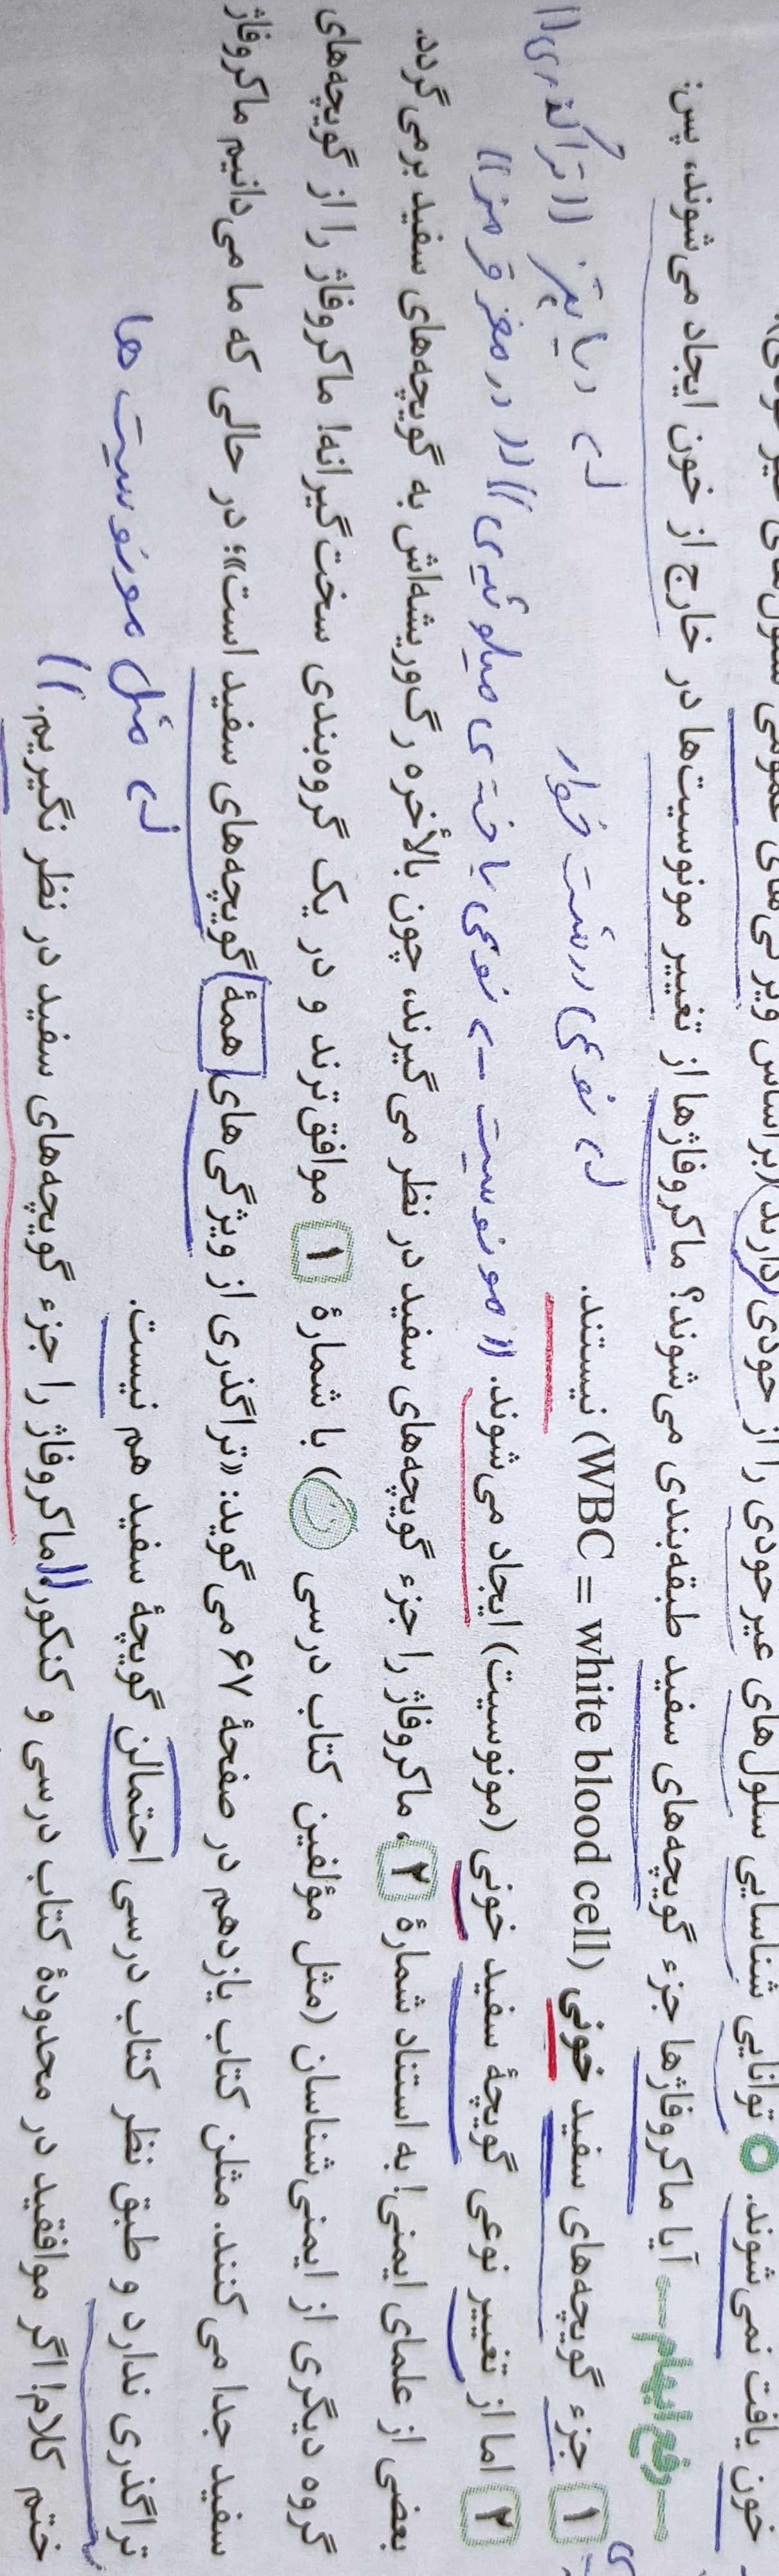 خون یافت نمی‌شوند. توانایی شناسایی سلول‌های غیرخودی را از خودی دارند (براساس ویژگی‌های عمومی
رفع ابهام آیا ماکروفاژها جزء گویچه‌های سفید طبقه‌بندی می‌شوند؟ ماکروفاژها از تغییر مونوسیت‌ها در خارج از خون ایجاد می‌شوند، پس:
۱ جزء گویچه‌های سفید خونی (WBC = white blood cell) نیستند.
نوعی درشت خوار
دیاپدز ((تراگذری))
۲ اما از تغییر نوعی گویچهٔ سفید خونی (مونوسیت) ایجاد می‌شوند.
((مونوسیت ← نوعی یاخته‌ی میلوئیدی)) ((در مغز قرمز))
بعضی از علمای ایمنی! به استناد شمارهٔ ۲، ماکروفاژ را جزء گویچه‌های سفید در نظر می‌گیرند، چون بالأخره رگ‌وریشه‌اش به گویچه‌های سفید برمی‌گردد.
گروه دیگری از ایمنی‌شناسان (مثل مؤلفین کتاب درسی) با شمارهٔ ۱ موافق‌ترند و در یک گروه‌بندی سخت‌گیرانه! ماکروفاژ را از گویچه‌های
سفید جدا می‌کنند. مثلن کتاب یازدهم در صفحهٔ ۶۷ می‌گوید: «تراگذری از ویژگی‌های همهٔ گویچه‌های سفید است»؛ در حالی که ما می‌دانیم ماکروفاژ
تراگذری ندارد و طبق نظر کتاب درسی احتمالن گویچهٔ سفید هم نیست.
مثل مونوسیت ها
ختم کلام! اگر موافقید در محدودهٔ کتاب درسی و کنکور ((ماکروفاژ را جزء گویچه‌های سفید در نظر نگیریم.))